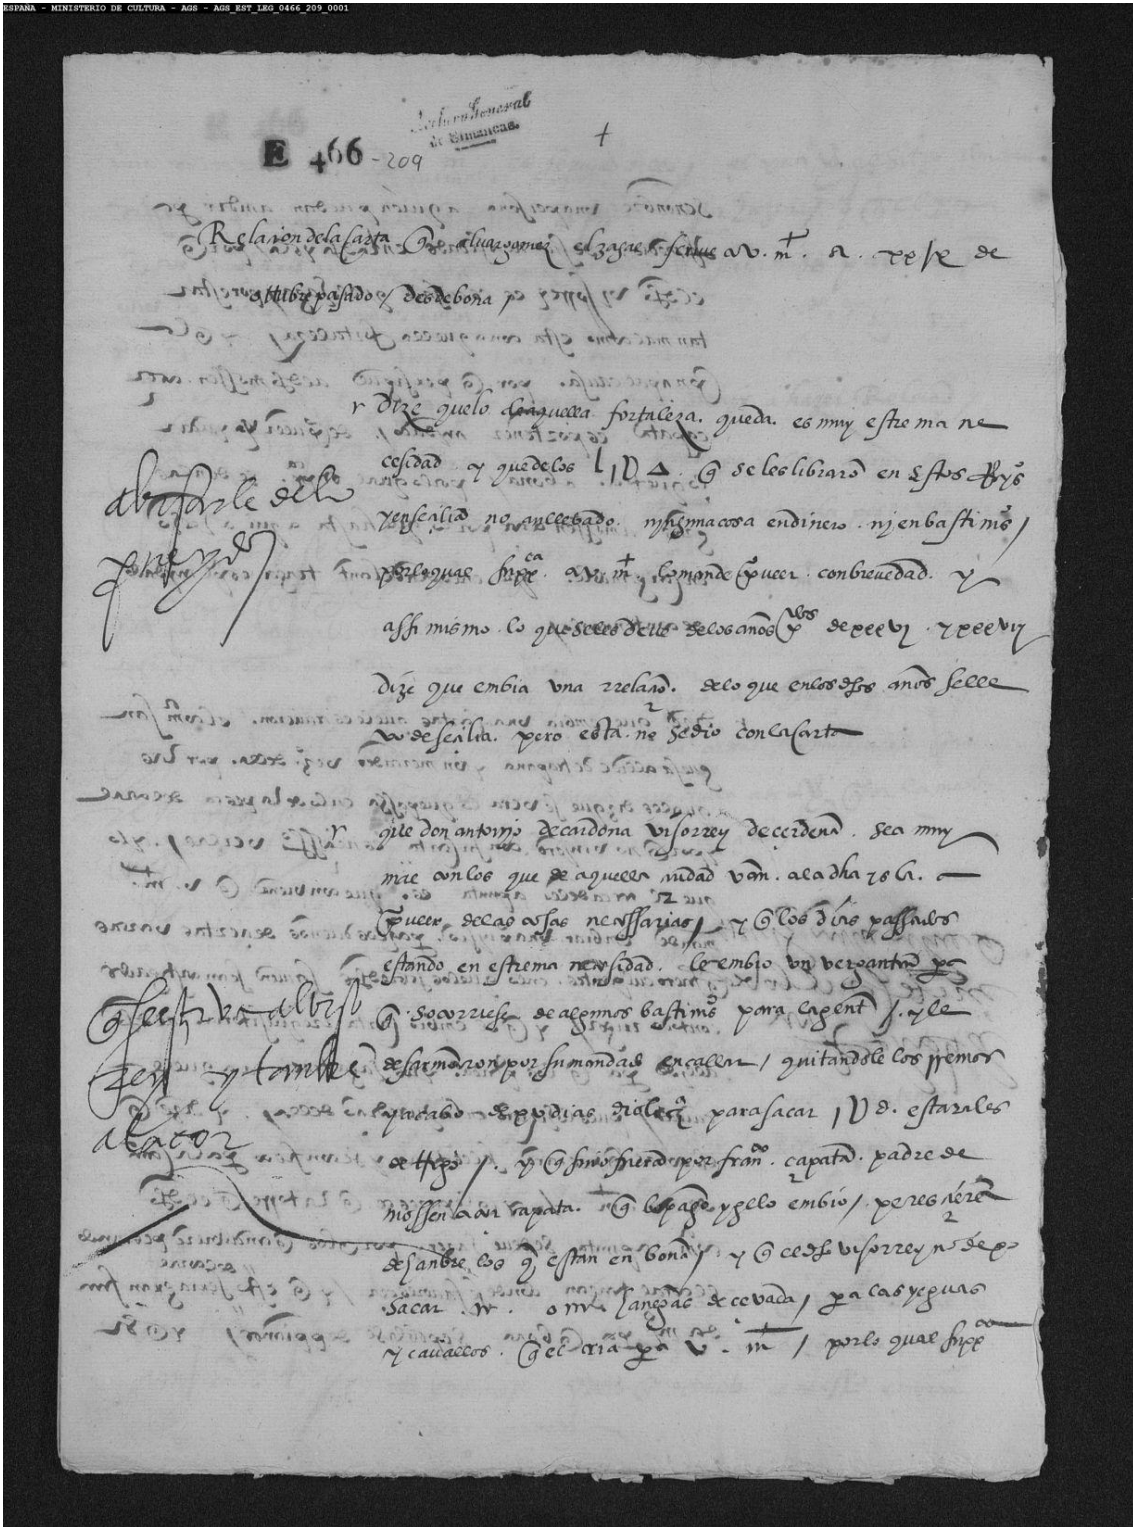 ESPAÑA - MINISTERIO DE CULTURA - AGS - AGS_EST_LEG_0466_209_0001
Archivo General
de Simancas.
E 466 -209
+
Relacion dela carta q̃ aluar gomez el zagal scriue a v. mt. a xxix de
ottubre pasado / desde bona /
dize quelo de aquella fortaleza. queda. es muy estrema ne
cesidad y que delos q̃ se les libraron en estos
y en secilia no an llebado. ninguna cosa en dinero. nj en bastimos /
por lo qual suppca. a v. mt. lo mande proueer. con breuedad. y
assi mismo. lo que se les deue delos años pos de xxxvj. y xxxvij
dize que embia una rrelaçion. delo que enlos dhos años selle
uo de secilia. pero esta no se dio con la carta
que don antonio de cardona visorrey de cerdeña. sea muy
mal con los que de aquella ciudad van. a la dha ysla.
proueer delas cosas necessarias / y q̃ los dias passados
estando en estrema necesidad. le embio un vergantin pa
q̃ socorriese de algunos bastimos para la gente /. y le
desarmaron por su mandado en callar / quitandole los rremos
para sacar estarales
de trigo /. y q̃ sino fuera por franco. capata. padre de
mossen capata. q̃ lo pago y gelo embio /. peresçieran
de hanbre los q̃ estan en bona / y q̃ el dho visorrey no dexo
sacar hanegas de ceuada / pa las yeguas
y cauallos. q̃ el cria pa v. mt / por lo qual suppca
q̃ se escriua al viso
rey y tambien